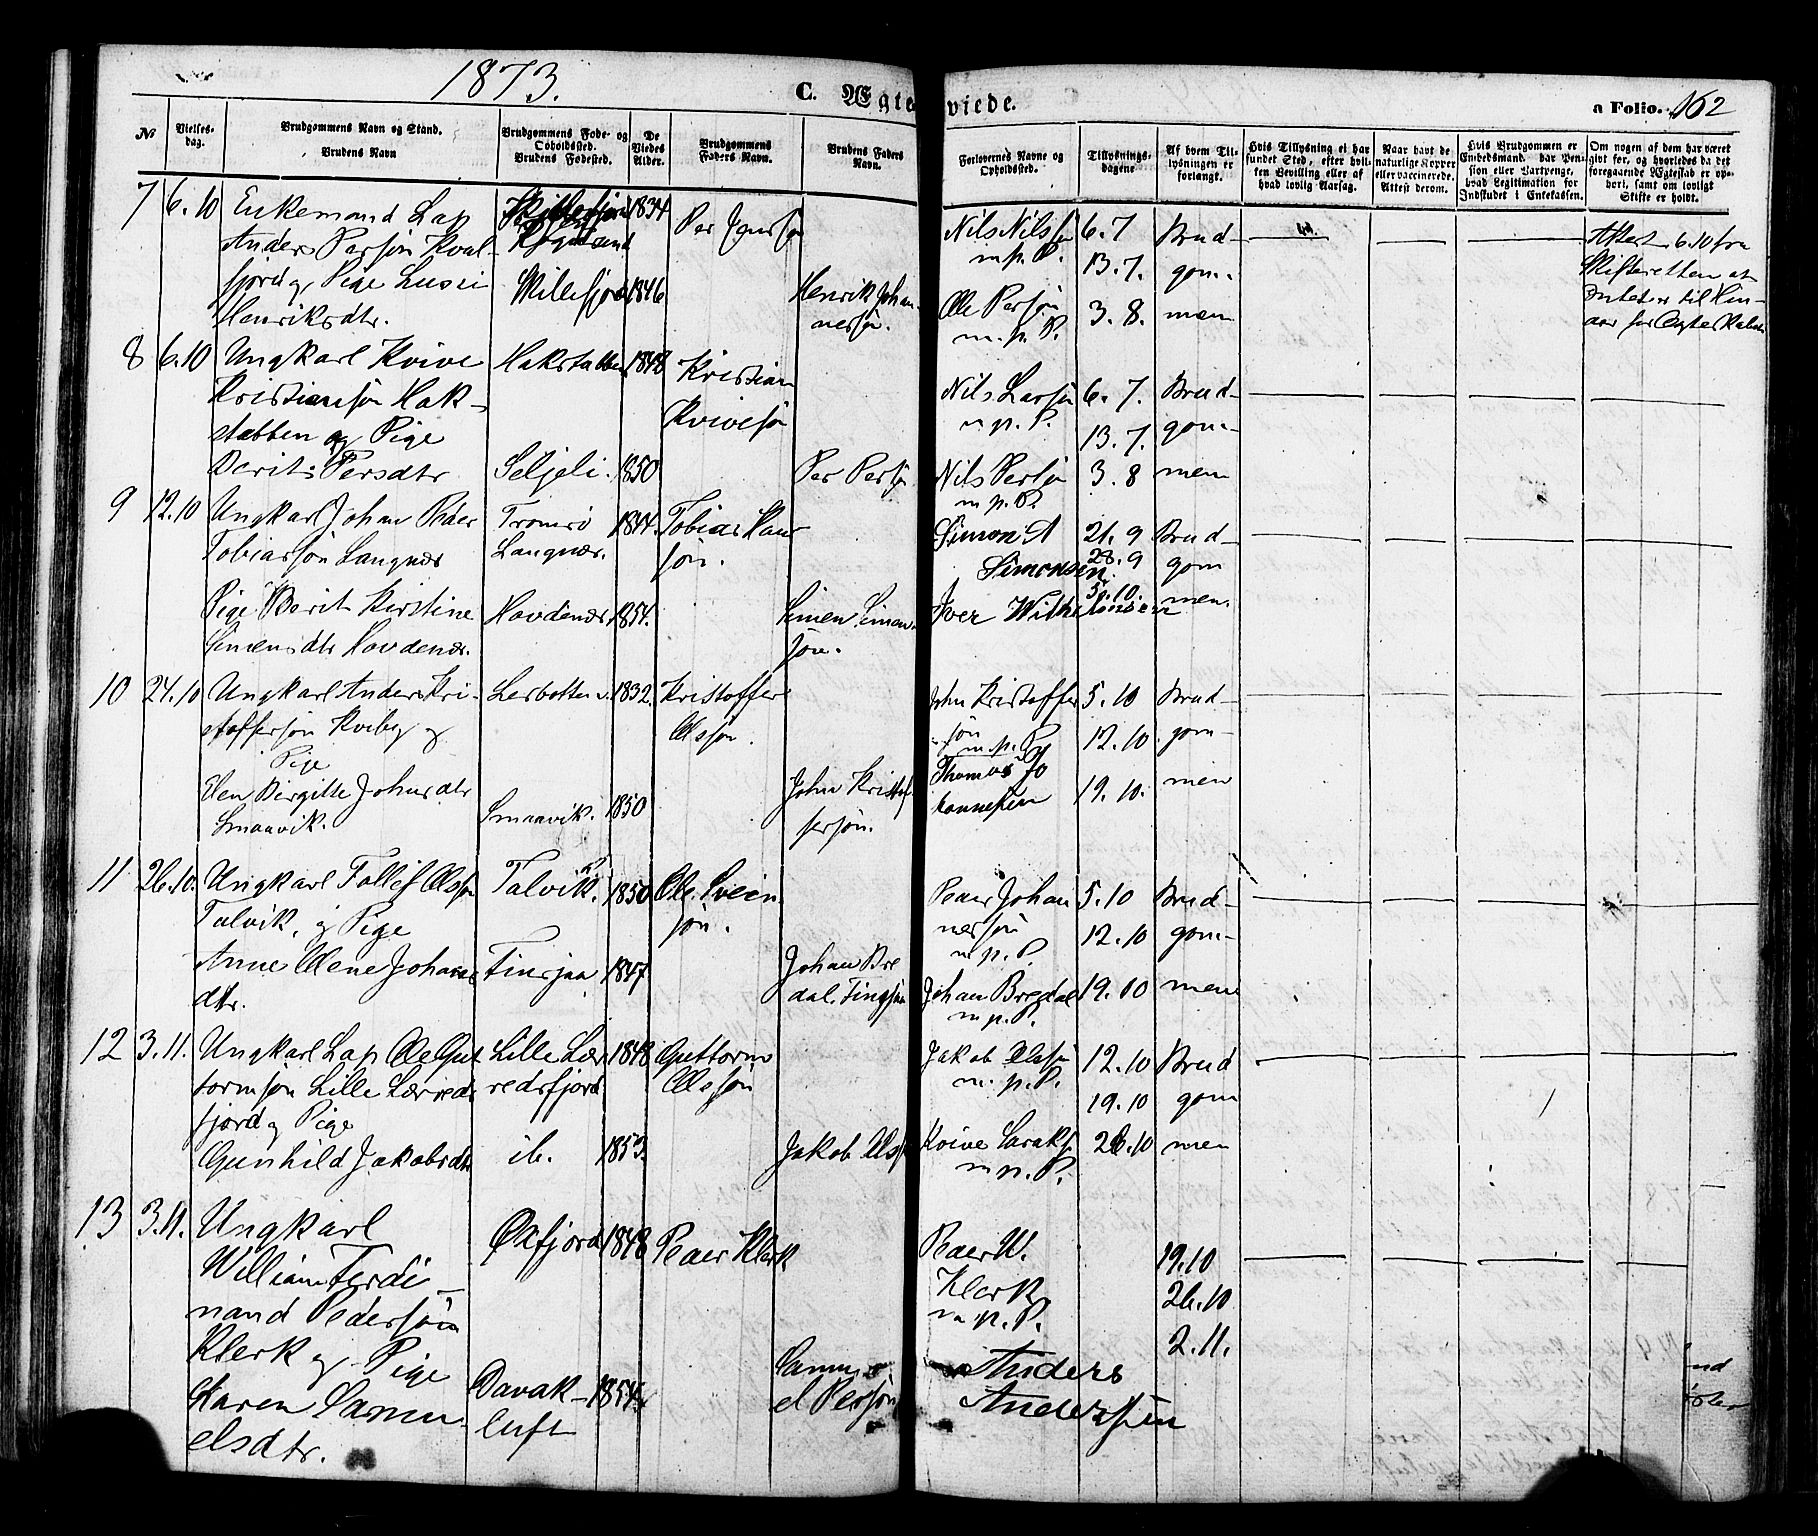 1873.
C. Ægteviede.
a Folio. 162
№
Vielses-
dag.
Brudgommens Navn og Stand.
Brudens Navn
Brudgommens Føde- og
Opholdssted.
Brudens Fødested.
De
Viedes
Alder.
Brudgommens
Faders Navn.
Brudens Faders
Navn.
Forlovernes Navne og
Opholdssted.
Tillysnings-
dagene
Af hvem Til-
lysningen er
forlangt.
Hvis Tillysning ei har
fundet Sted, efter hvil-
ken Bevilling eller af
hvad lovlig Aarsag.
Naar havt de
naturlige Kopper
eller vaccinerede.
Attest derom.
Hvis Brudgommen er
Embedsmand, bar Pen-
sion eller Vartpenge,
hvad Legitimation for
Indskudet i Enkekassen.
Om nogen af dem har været
givt før, og hvorledes da det
foregaaende Ægteskab er op-
hørt, samt om lovligt
Skifte er holdt.
7 6.10 Enkemand Lap
Anders Persøn Kval-
fjord og Pige
Henriksdtr.
1834
Per
Skillefjord 1846
Henrik Johan-
nersøn.
Nils Nilssøn
m. p. P.
Ole Persøn
m. p. P.
6.7
13.7.
3.8.
Brud-
gom-
men
Attest 6.10 fra
Skifteretten at
Intet er til Hin-
der for Ægteskabet
8 6.10 Ungkarl Kvive
Kristiansøn Hak-
stabben og Pige
Berit Persdtr
Hakstabben 1848
Kristian
Kvivesøn
Seljeli. 1850
Per Persøn
Nils Larsøn
m. p. P.
Nils Persøn
m. p. P.
6.7.
13.7.
3.8
Brud-
gom-
men
9 12.10 Ungkarl Johan Peder
Tobiassøn Langnæs
Pige Berit Kirstine
Simensdtr Havdenæs.
Tromsø
Langnæs.
1844.
Tobias Han-
søn.
Havdenæs 1854.
Simen Simon-
søn.
Simon A
Simonsen
Iver Wilhelmsen
21.9
28.9
5.10.
Brud-
gom
men.
10 24.10 Ungkarl Anders Kri-
stoffersøn Kviby og
Pige
Elen Birgitte Johnsdtr
Smaavik.
Lerbotten 1832.
Kristoffer
Olssøn.
Smaavik. 1850
John Kristof-
fersøn.
John Kristoffer
søn
m. p. P.
Thomas Jo
hannesen
5.10
12.10.
19.10.
Brud-
gom-
men
11 26.10. Ungkarl Tollef Olssøn
Talvik, og Pige
Anne Olene Johans
dtr.
Talvik. 1850
Ole Svein
søn.
1847
Johan Bre
dal.
Peder Johan
nersøn
m. p. P.
Johan Bredal
m. p. P.
5.10
12.10
19.10
Brud-
gom-
men
12 3.11. Ungkarl Lap Ole Gut
tormsøn Lille Lerreds
fjord og Pige
Gunhild Jakobsdtr
Lille Ler
redsfjord
1848
Guttorm
Olssøn
ib. 1853.
Jakob Olss
Jakob Olssøn
m. p. P.
Kvive
m. p. P.
12.10
19.10
26.10
Brud
gom
men
13 3.11. Ungkarl
William Ferdi-
nand Pedersøn
Klerk og Pige
Karen Samu-
elsdtr.
Øxfjord 1848
Peder Klerk
Davak-
luft
1854.
Samu-
el Persøn
Peder W.
Klerk
m. p. P.
Anders
Anderssøn
19.10
26.10
2.11.